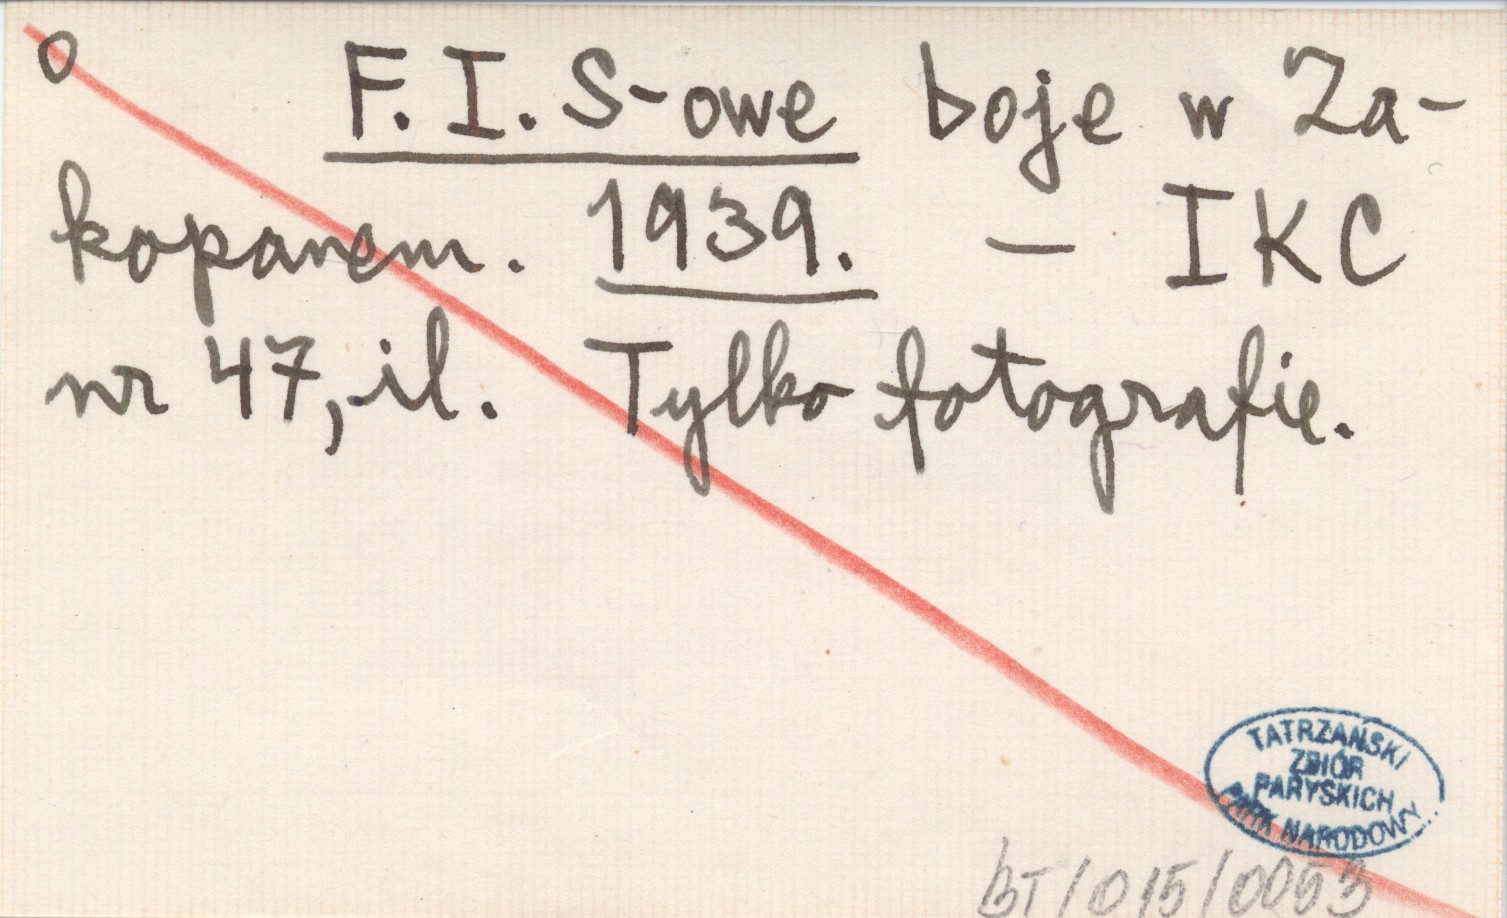 o F. I. S-owe boje w Za-
kopanem. 1939. — IKC
nr 47, il. Tylko fotografie.
TATRZAŃSKI
ZBIÓR
PARYSKICH
PARK NARODOWY
bT/015/0053